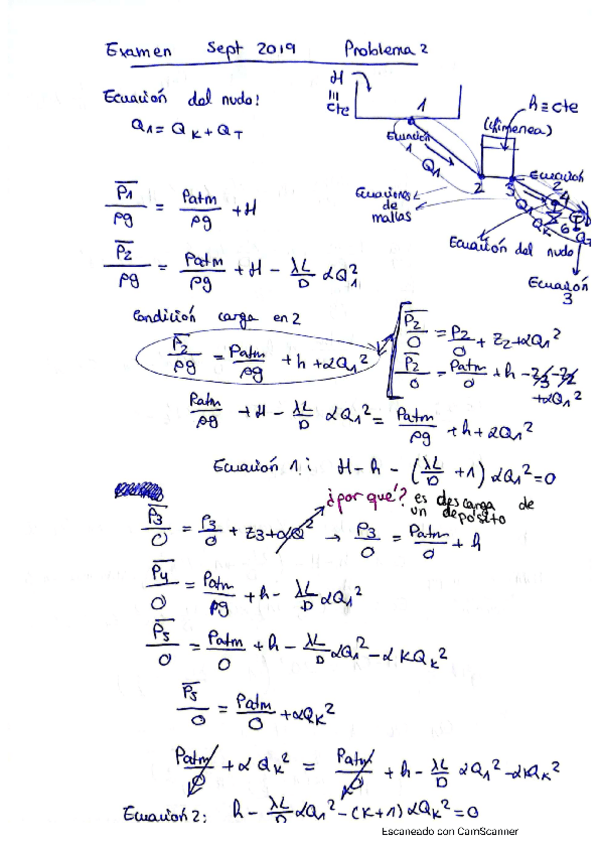 Examen Sept 2019 Problema 2
Ecuación del nudo:
Q1 = QK + QT
H
III
cte
1
h≡cte
(chimenea)
Ecuación
1
Q1
2
3
Ecuación
2
4
Q1
QK
6
Ecuaciones
de
mallas
Ecuación del nudo
Ecuación
3
P1/ρg = Patm/ρg + H
P2/ρg = Patm/ρg + H - λL/D αQ1²
Condición carga en 2
P2/ρg = Patm/ρg + h + αQ1²
P2/0 = P2/0 + z2 + αQ1²
P2/0 = Patm/0 + h - z2 - z2
+ αQ1²
Patm/ρg + H - λL/D αQ1² = Patm/ρg + h + αQ1²
Ecuación 1: H - h - (λL/D + 1) αQ1² = 0
¿por qué? es descarga de
un depósito
P3/0 = P3/0 + z3 + αQ² → P3/0 = Patm/0 + h
P4/0 = Patm/ρg + h - λL/D αQ1²
P5/0 = Patm/0 + h - λL/D αQ1² - αKQK²
P5/0 = Patm/0 + αQK²
Patm/0 + αQK² = Patm/0 + h - λL/D αQ1² - αKQK²
Ecuación 2: h - λL/D αQ1² - (K+1) αQK² = 0
Escaneado con CamScanner